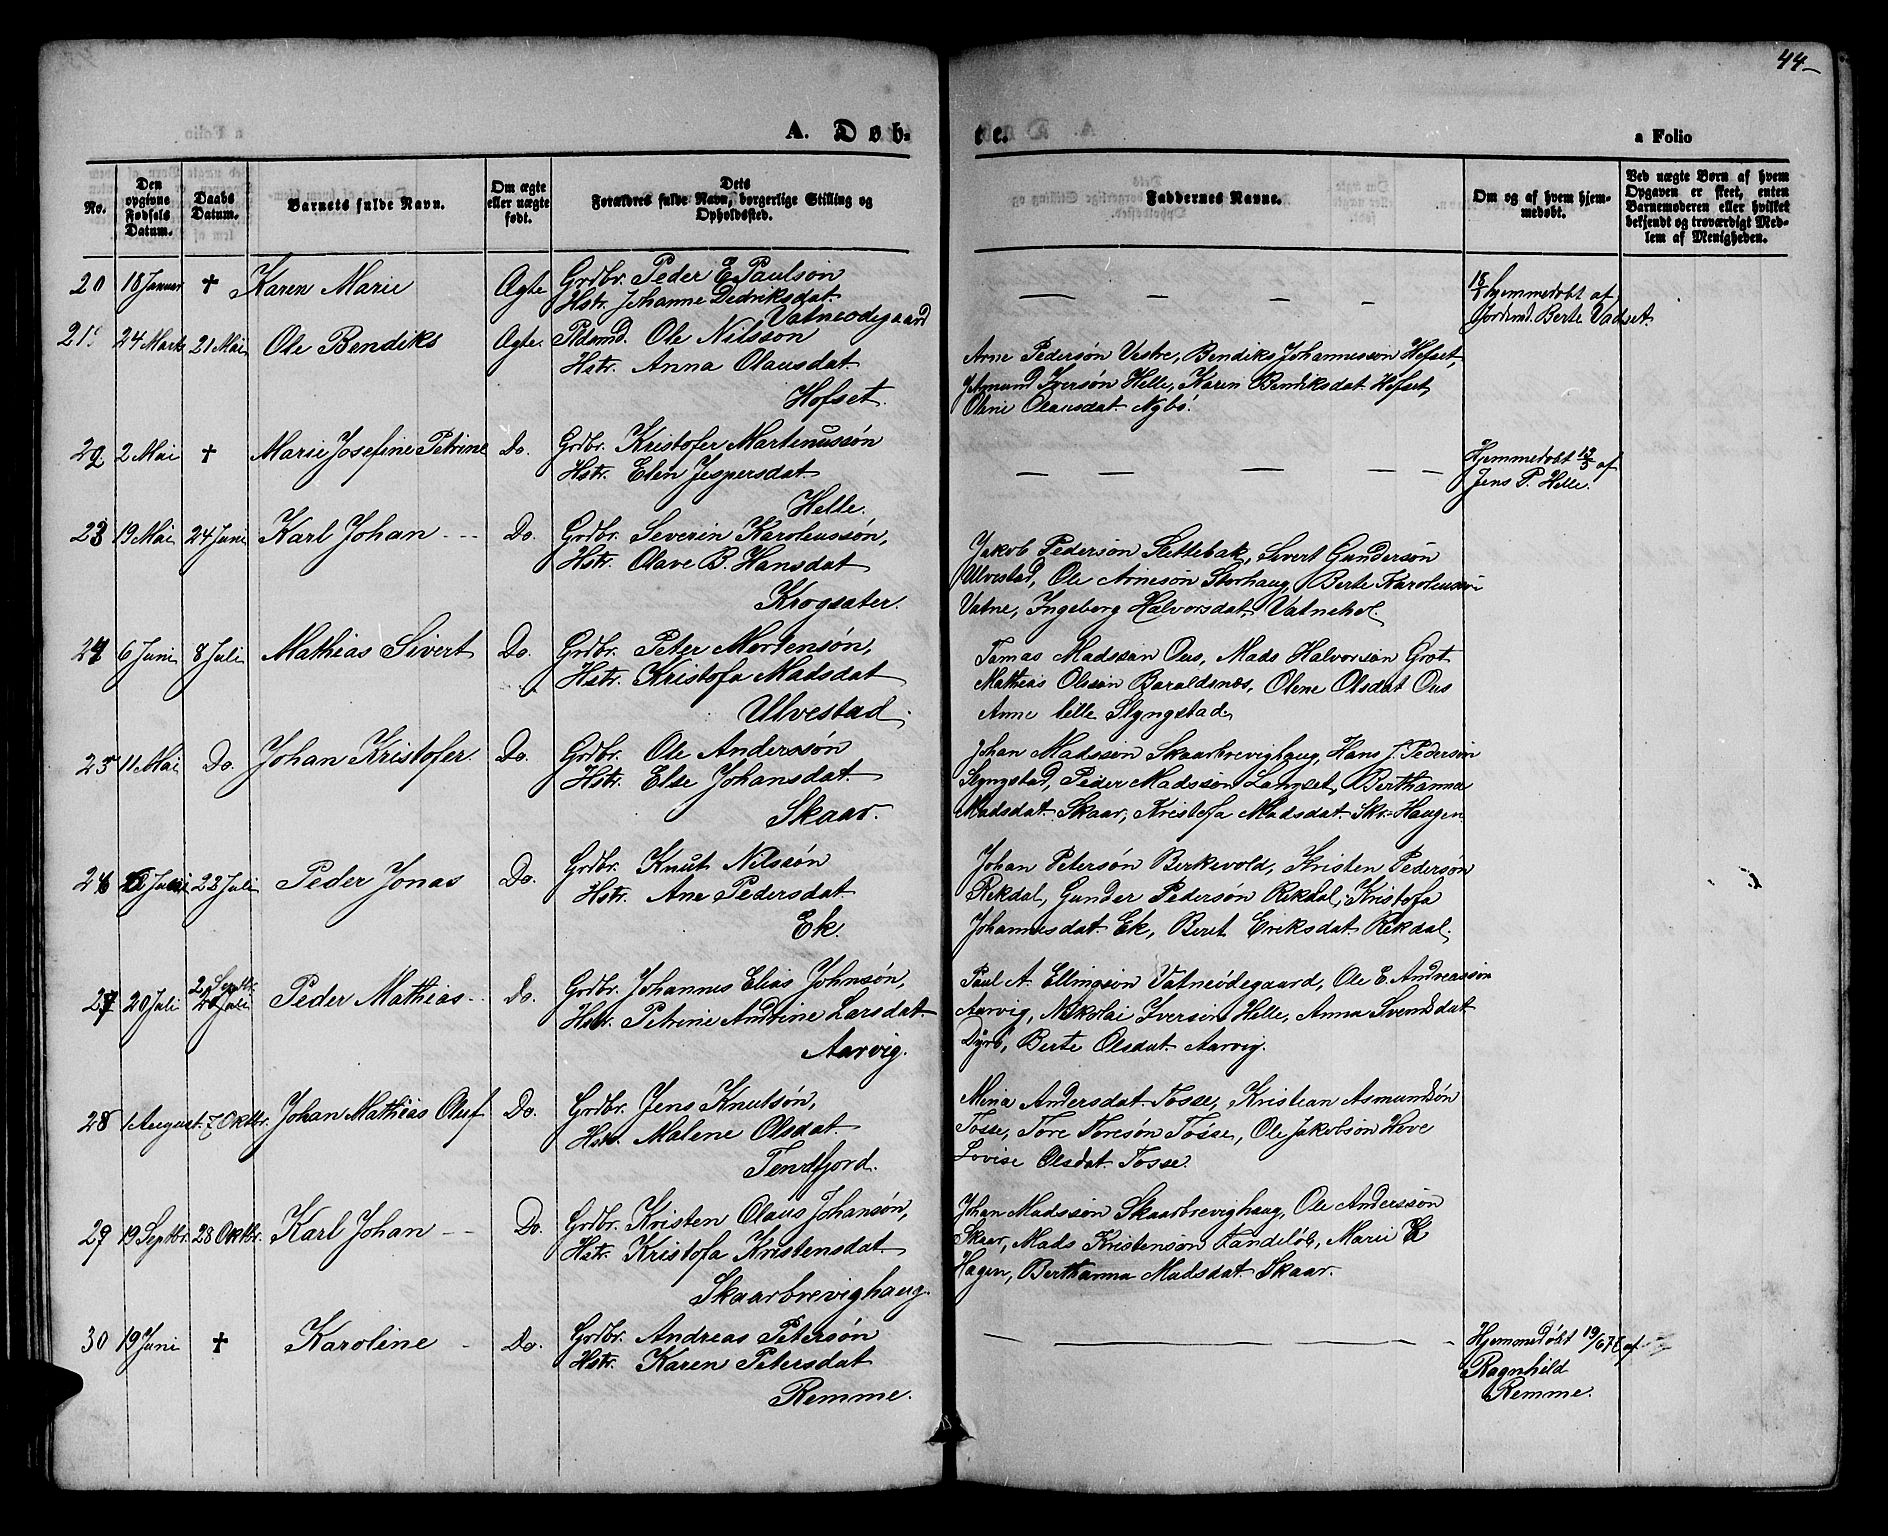 44-
A. Døb-
te.
a Folio
No.
Den opgivne Fødsels Datum.
Daabs Datum.
Barnets fulde Navn.
Om ægte eller uægte født.
Dets Forældres fulde Navn, borgerlige Stilling og Opholdssted.
Faddernes Navne.
Om og af hvem hjemmedøbt.
Ved uægte Børn af hvem Opgaven er skeet, enten Barnemoderen eller hvilket bekjendt og troværdigt Medlem af Menigheden.
20 18 Januar † Karen Marie Ægte Grdbr. Peder E. Paulsøn
Hstr. Johanne Dedriksdat.
Vatneødegaard
— — — —
18/1 hjemmedøbt af
Jordemd. Berte Vadset.
21 24 Marts 21 Mai Ole Bendiks Ægte. Pldsmd. Ole Nilssøn
Hstr. Anna Olausdat.
Hofset.
Arne Pedersøn Vestre, Bendiks Johannessøn Hofset,
Jetmund Iversøn Helle, Karen Bendiksdat. Hofset,
Olene Olausdat. Nybø.
22 2 Mai † Marie Josefine Petrine Do. Grdbr. Kristofer Martinussøn
Hstr. Elen Jespersdat.
Helle.
— — — — —
Hjemmedøbt 13/5 af
Jens P. Helle.
23 19 Mai 24 Juni Karl Johan - - - Do. Grdbr. Severin Karolussøn,
Hstr. Olave B. Hansdat
Krogsæter.
Jakob Pedersøn Slettebak, Sivert Gundersøn
Ulvestad, Ole Arnesøn Storhaug, Berte Karolusdat
Vatne, Ingeborg Halvorsdat. Vatnehol.
24 6 Juni 8 Juli Mathias Sivert Do. Grdbr. Peter Mortensøn,
Hstr. Kristofa Madsdat
Ulvestad.
Tomas Madssøn Ous, Mads Halvorsøn Grot
Mathias Olsøn Baraldsnes, Olene Olsdat Ous
Anne lille Slyngstad,
25 11 Mai Do. Johan Kristofer. Do. Grdbr. Ole Anderssøn
Hstr. Else Johansdat.
Skaar.
Johan Madssøn Skaarbrevighaug, Hans J. Pedersøn
Slyngstad, Peder Madssøn Langset, Berthanna
Madsdat. Skaar, Kristofa Madsdat. Skr.-Haugen.
26 Juni 22 Juli Peder Jonas Do. Grdbr. Knut Nilssøn
Hstr. Ane Pedersdat.
Ek.
Johan Petersøn Berkevold, Kristen Pedersøn
Rekdal, Gunder Pedersøn Rekdal, Kristofa
Johannesdat. Ek, Beret Eriksdat. Rekdal.
27 20 Juli 2 Septbr. Juli Peder Mathias - - Do. Grdbr. Johannes Elias Johnsøn,
Hstr. Petrine Andrine Larsdat.
Aarvig.
Paul A. Ellingsøn Vatneødegaard, Ole E. Andreassøn
Aarvig, Nikolai Iversøn Helle, Anna Svendsdat
Dyrø, Berte Olsdat. Aarvig.
28 1 August. 7 Oktbr. Johan Mathias Oluf Do. Grdbr. Jens Knutsøn,
Hstr. Malene Olsdat.
Tendfjord.
Mina Andersdat. Tosse, Kristian Asmundsøn
Tosse, Tore Toresøn Tosse, Ole Jakobsøn Hove
Lovise Olsdat. Tosse.
29 19 Septbr. 28 Oktbr. Karl Johan - - Do. Grdbr. Kristen Olaus Johansøn,
Hstr. Kristofa Kristensdat
Skaarbrevighaug.
Johan Madssøn Skaarbrevighaug, Ole Anderssøn
Skaar, Mads Kristensøn Tandeløb, Marie
Hagen, Berthanna Madsdat. Skaar.
30 19 Juni † Karoline - Do. Grdbr. Andreas Petersøn
Hstr. Karen Petersdat
Remme.
— — — —
Hjemmedøbt 19/6 77 af
Ragnhild
Remme.